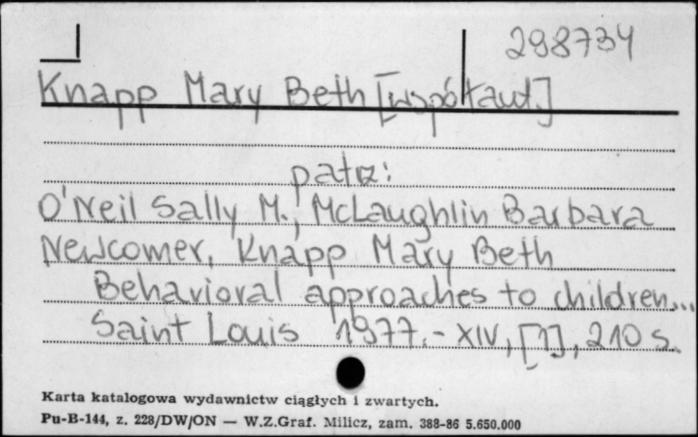 298734
Knapp Mary Beth [współaut.]
patrz:
O'Neil Sally M., McLaughlin Barbara
Newcomer, Knapp Mary Beth
Behavioral approaches to children...
Saint Louis 1977.- XIV, [1], 210 s.
Karta katalogowa wydawnictw ciągłych i zwartych.
Pu-B-144, z. 228/DW/ON — W.Z.Graf. Milicz, zam. 388-86 5.650.000